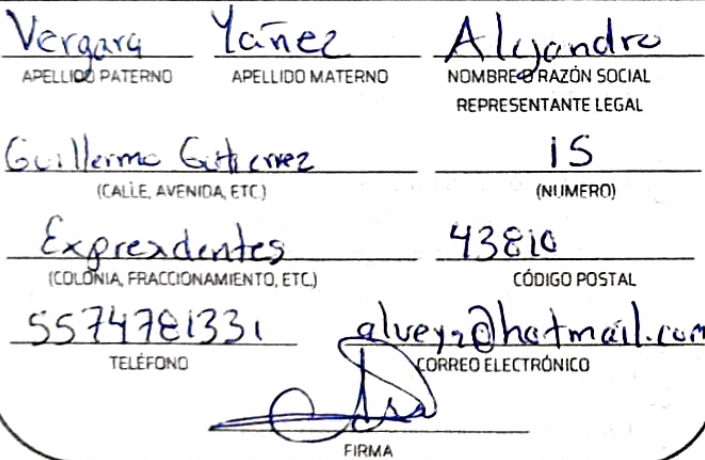 Vergara Yañez Alejandro
APELLIDO PATERNO APELLIDO MATERNO NOMBRE O RAZÓN SOCIAL
REPRESENTANTE LEGAL
Guillermo Gutierrez 15
(CALLE, AVENIDA, ETC.) (NUMERO)
Expresdentes 43810
(COLONIA, FRACCIONAMIENTO, ETC.) CÓDIGO POSTAL
5574781331 alveyz@hotmail.com
TELÉFONO CORREO ELECTRÓNICO
FIRMA